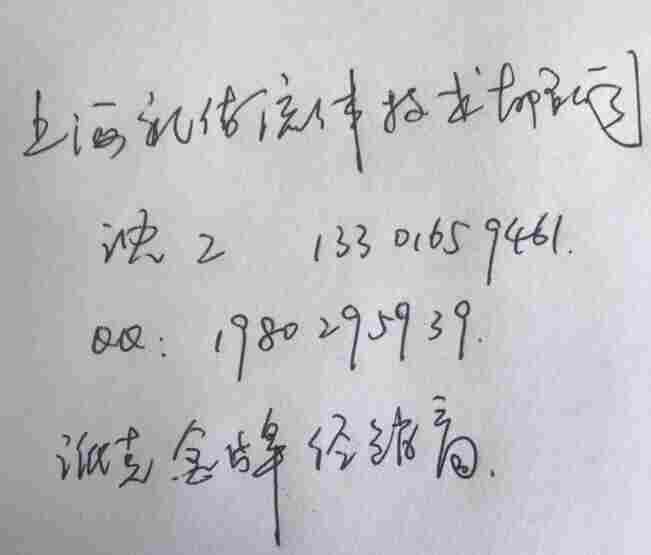 上海航佑流体技术有限公司
沈工 13301659461.
QQ: 1980295939.
派克金牌经销商.